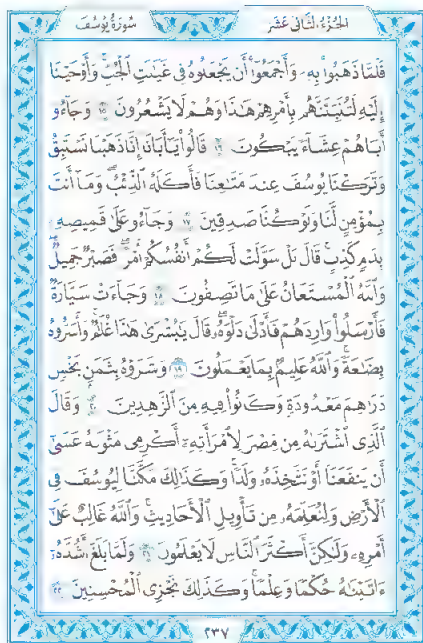 الجزء الثاني عشر
سورة يوسف
فَلَمَّا ذَهَبُوا۟ بِهِۦ وَأَجْمَعُوٓا۟ أَن يَجْعَلُوهُ فِى غَيَٰبَتِ ٱلْجُبِّ وَأَوْحَيْنَآ
إِلَيْهِ لَتُنَبِّئَنَّهُم بِأَمْرِهِمْ هَٰذَا وَهُمْ لَا يَشْعُرُونَ ١٥ وَجَآءُوٓ
أَبَاهُمْ عِشَآءً يَبْكُونَ ١٦ قَالُوا۟ يَٰٓأَبَانَآ إِنَّا ذَهَبْنَا نَسْتَبِقُ
وَتَرَكْنَا يُوسُفَ عِندَ مَتَٰعِنَا فَأَكَلَهُ ٱلذِّئْبُ ۖ وَمَآ أَنتَ
بِمُؤْمِنٍ لَّنَا وَلَوْ كُنَّا صَٰدِقِينَ ١٧ وَجَآءُو عَلَىٰ قَمِيصِهِۦ
بِدَمٍ كَذِبٍ ۚ قَالَ بَلْ سَوَّلَتْ لَكُمْ أَنفُسُكُمْ أَمْرًا ۖ فَصَبْرٌ جَمِيلٌ ۖ
وَٱللَّهُ ٱلْمُسْتَعَانُ عَلَىٰ مَا تَصِفُونَ ١٨ وَجَآءَتْ سَيَّارَةٌ
فَأَرْسَلُوا۟ وَارِدَهُمْ فَأَدْلَىٰ دَلْوَهُۥ ۖ قَالَ يَٰبُشْرَىٰ هَٰذَا غُلَٰمٌ ۚ وَأَسَرُّوهُ
بِضَٰعَةً ۚ وَٱللَّهُ عَلِيمٌۢ بِمَا يَعْمَلُونَ ١٩ وَشَرَوْهُ بِثَمَنٍۭ بَخْسٍ
دَرَٰهِمَ مَعْدُودَةٍ وَكَانُوا۟ فِيهِ مِنَ ٱلزَّٰهِدِينَ ٢٠ وَقَالَ
ٱلَّذِى ٱشْتَرَىٰهُ مِن مِّصْرَ لِٱمْرَأَتِهِۦٓ أَكْرِمِى مَثْوَىٰهُ عَسَىٰٓ
أَن يَنفَعَنَآ أَوْ نَتَّخِذَهُۥ وَلَدًا ۚ وَكَذَٰلِكَ مَكَّنَّا لِيُوسُفَ فِى
ٱلْأَرْضِ وَلِنُعَلِّمَهُۥ مِن تَأْوِيلِ ٱلْأَحَادِيثِ ۚ وَٱللَّهُ غَالِبٌ عَلَىٰٓ
أَمْرِهِۦ وَلَٰكِنَّ أَكْثَرَ ٱلنَّاسِ لَا يَعْلَمُونَ ٢١ وَلَمَّا بَلَغَ أَشُدَّهُۥٓ
ءَاتَيْنَٰهُ حُكْمًا وَعِلْمًا ۚ وَكَذَٰلِكَ نَجْزِى ٱلْمُحْسِنِينَ ٢٢
٢٣٧